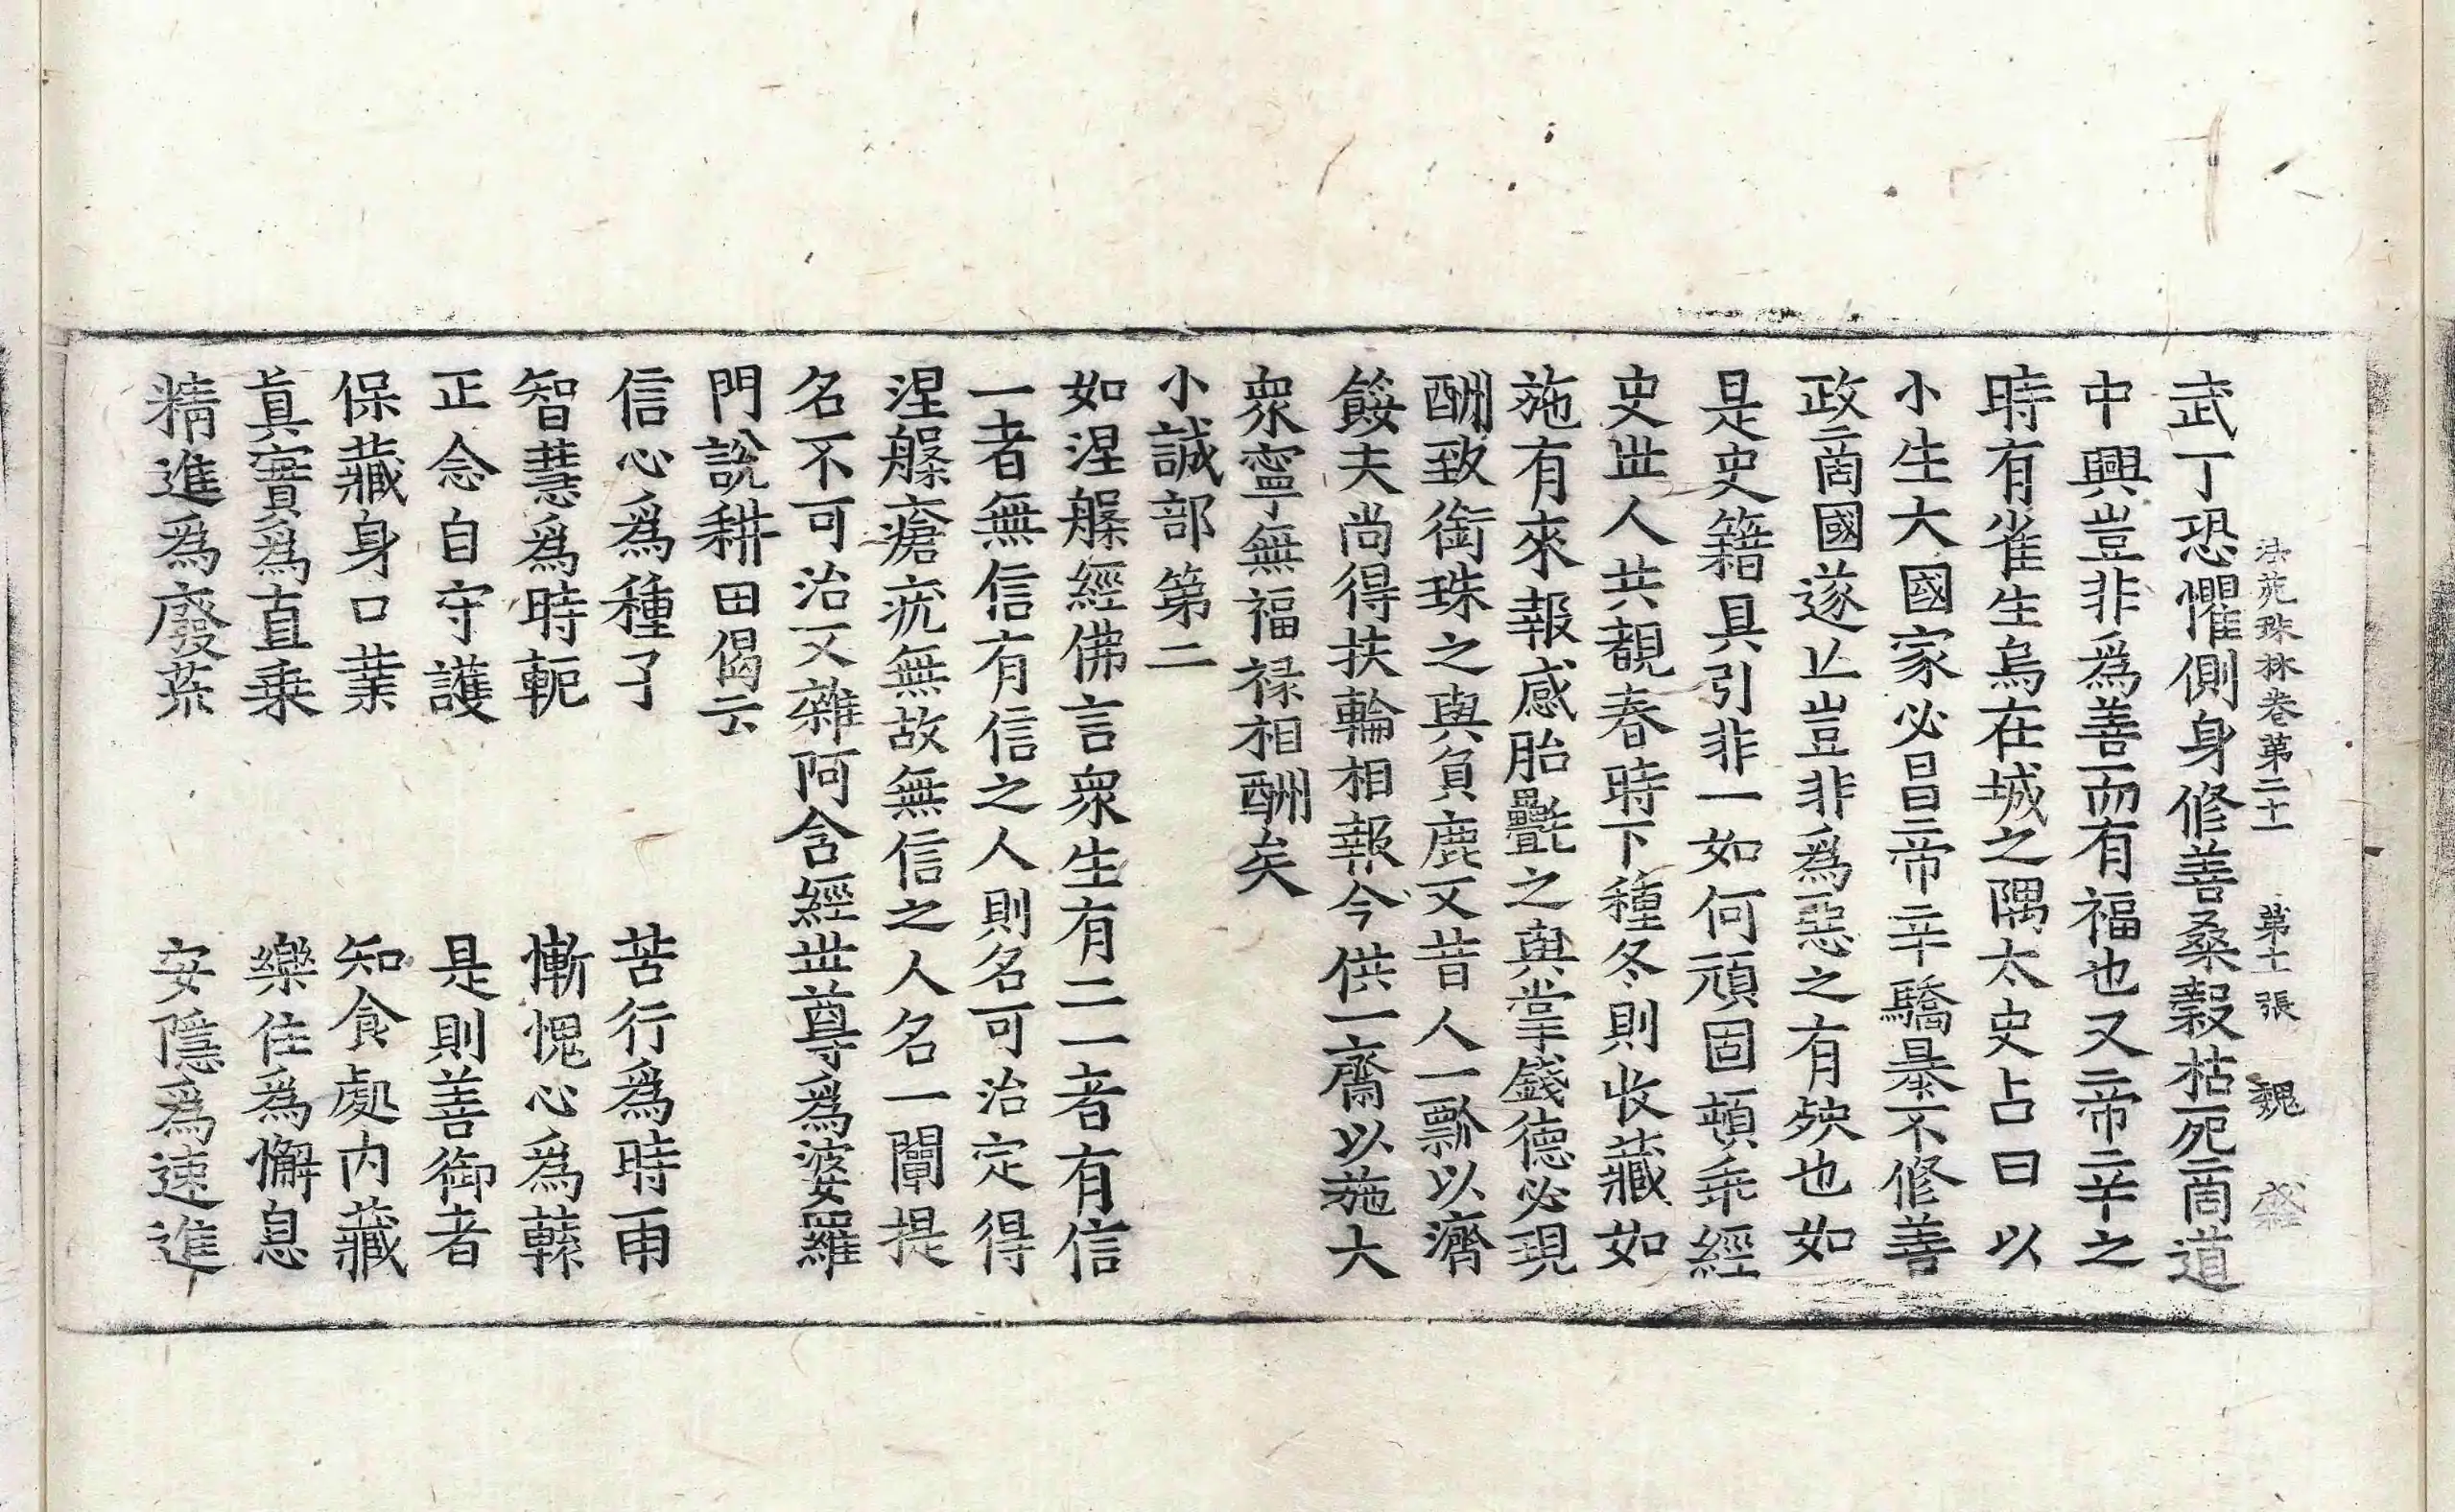 法苑珠林卷第二十一 第十一張 魏
武丁恐懼側身修善桑穀枯死啇道
中興豈非爲善而有福也又帝辛之
時有雀生烏在城之隅太史占曰以
小生大國家必昌帝辛驕暴不修善
政啇國遂止豈非爲惡之有殃也如
是史籍具引非一如何頑固頓乖經
史世人共覩春時下種冬則收藏如
施有來報感胎㲲之與掌錢德必現
酬致銜珠之與負鹿又昔人一瓢以濟
餧夫尚得扶輪相報今供一齋以施大
衆寧無福禄相酬矣
小誠部第二
如涅槃經佛言衆生有二一者有信
一者無信有信之人則名可治定得
涅槃瘡疣無故無信之人名一闡提
名不可治又雜阿含經世尊爲婆羅
門說耕田偈云
信心爲種子 苦行爲時雨
智慧爲時軛 慚愧心爲轅
正念自守護 是則善御者
保藏身口業 知食處內藏
真實爲直乘 樂住爲懈息
精進爲廢荒 安隱爲速進